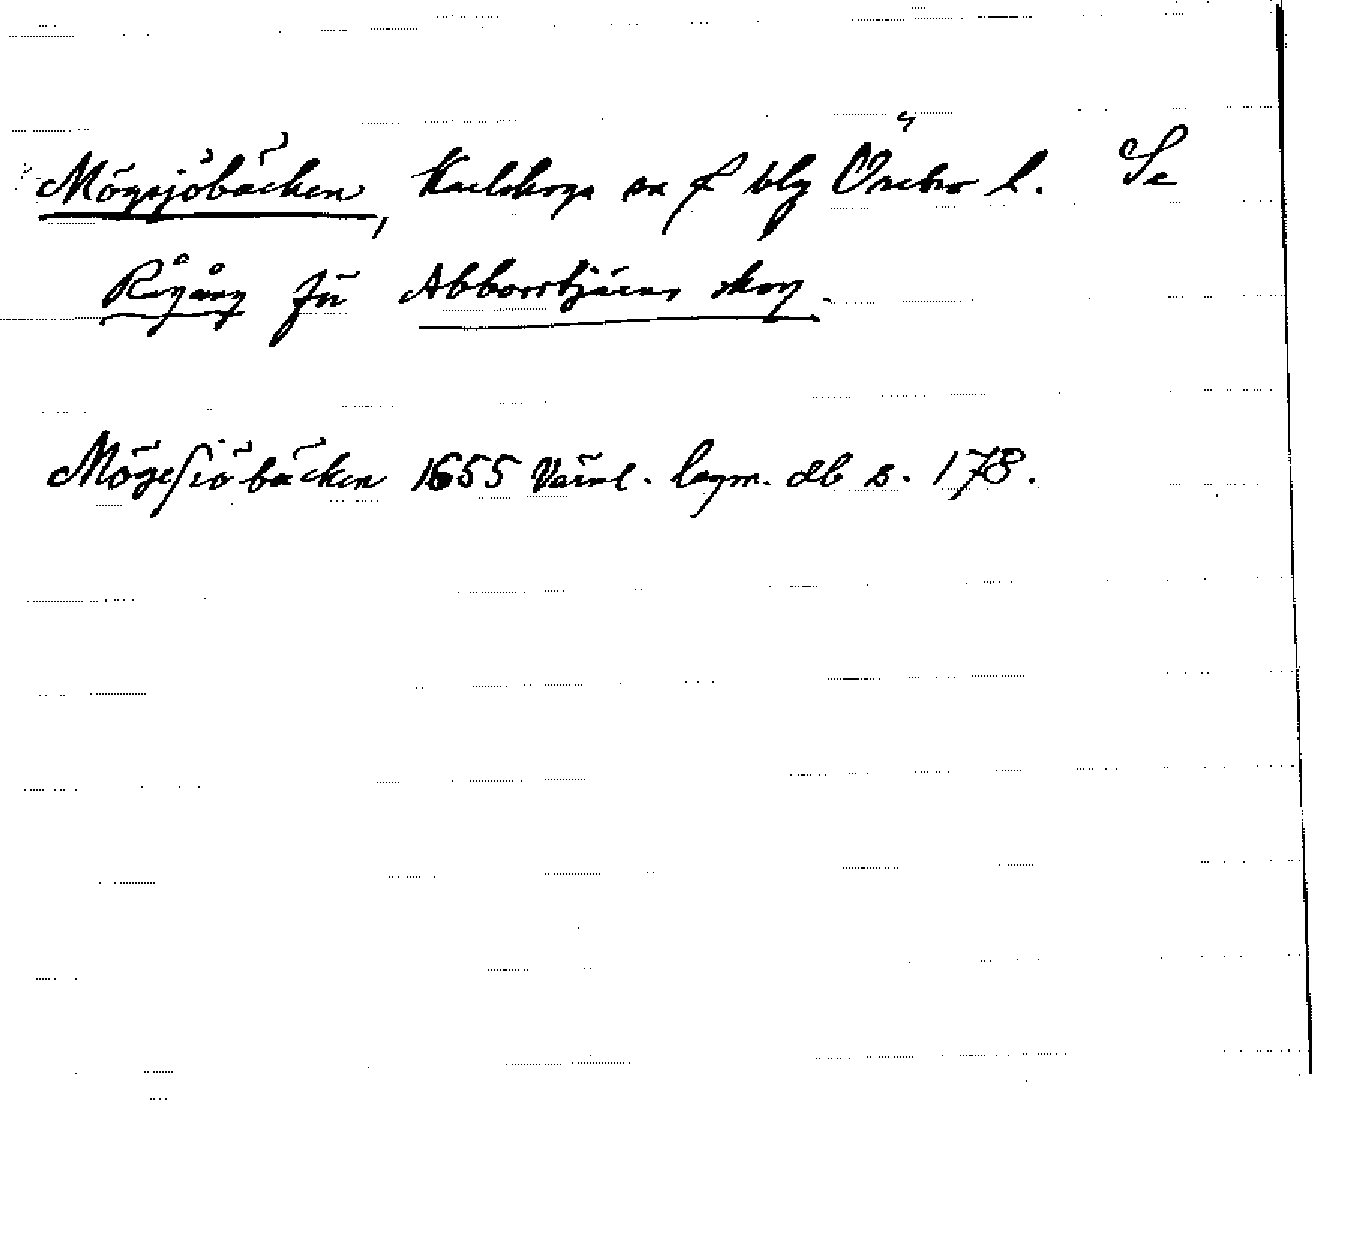 Mögsjöbäcken, Karlskoga sn o f blg Örebro l. Se
Rågång för Abborrtjärns skog.
Mögesiöbäcken 1655 Värml. lagm. db s. 178.